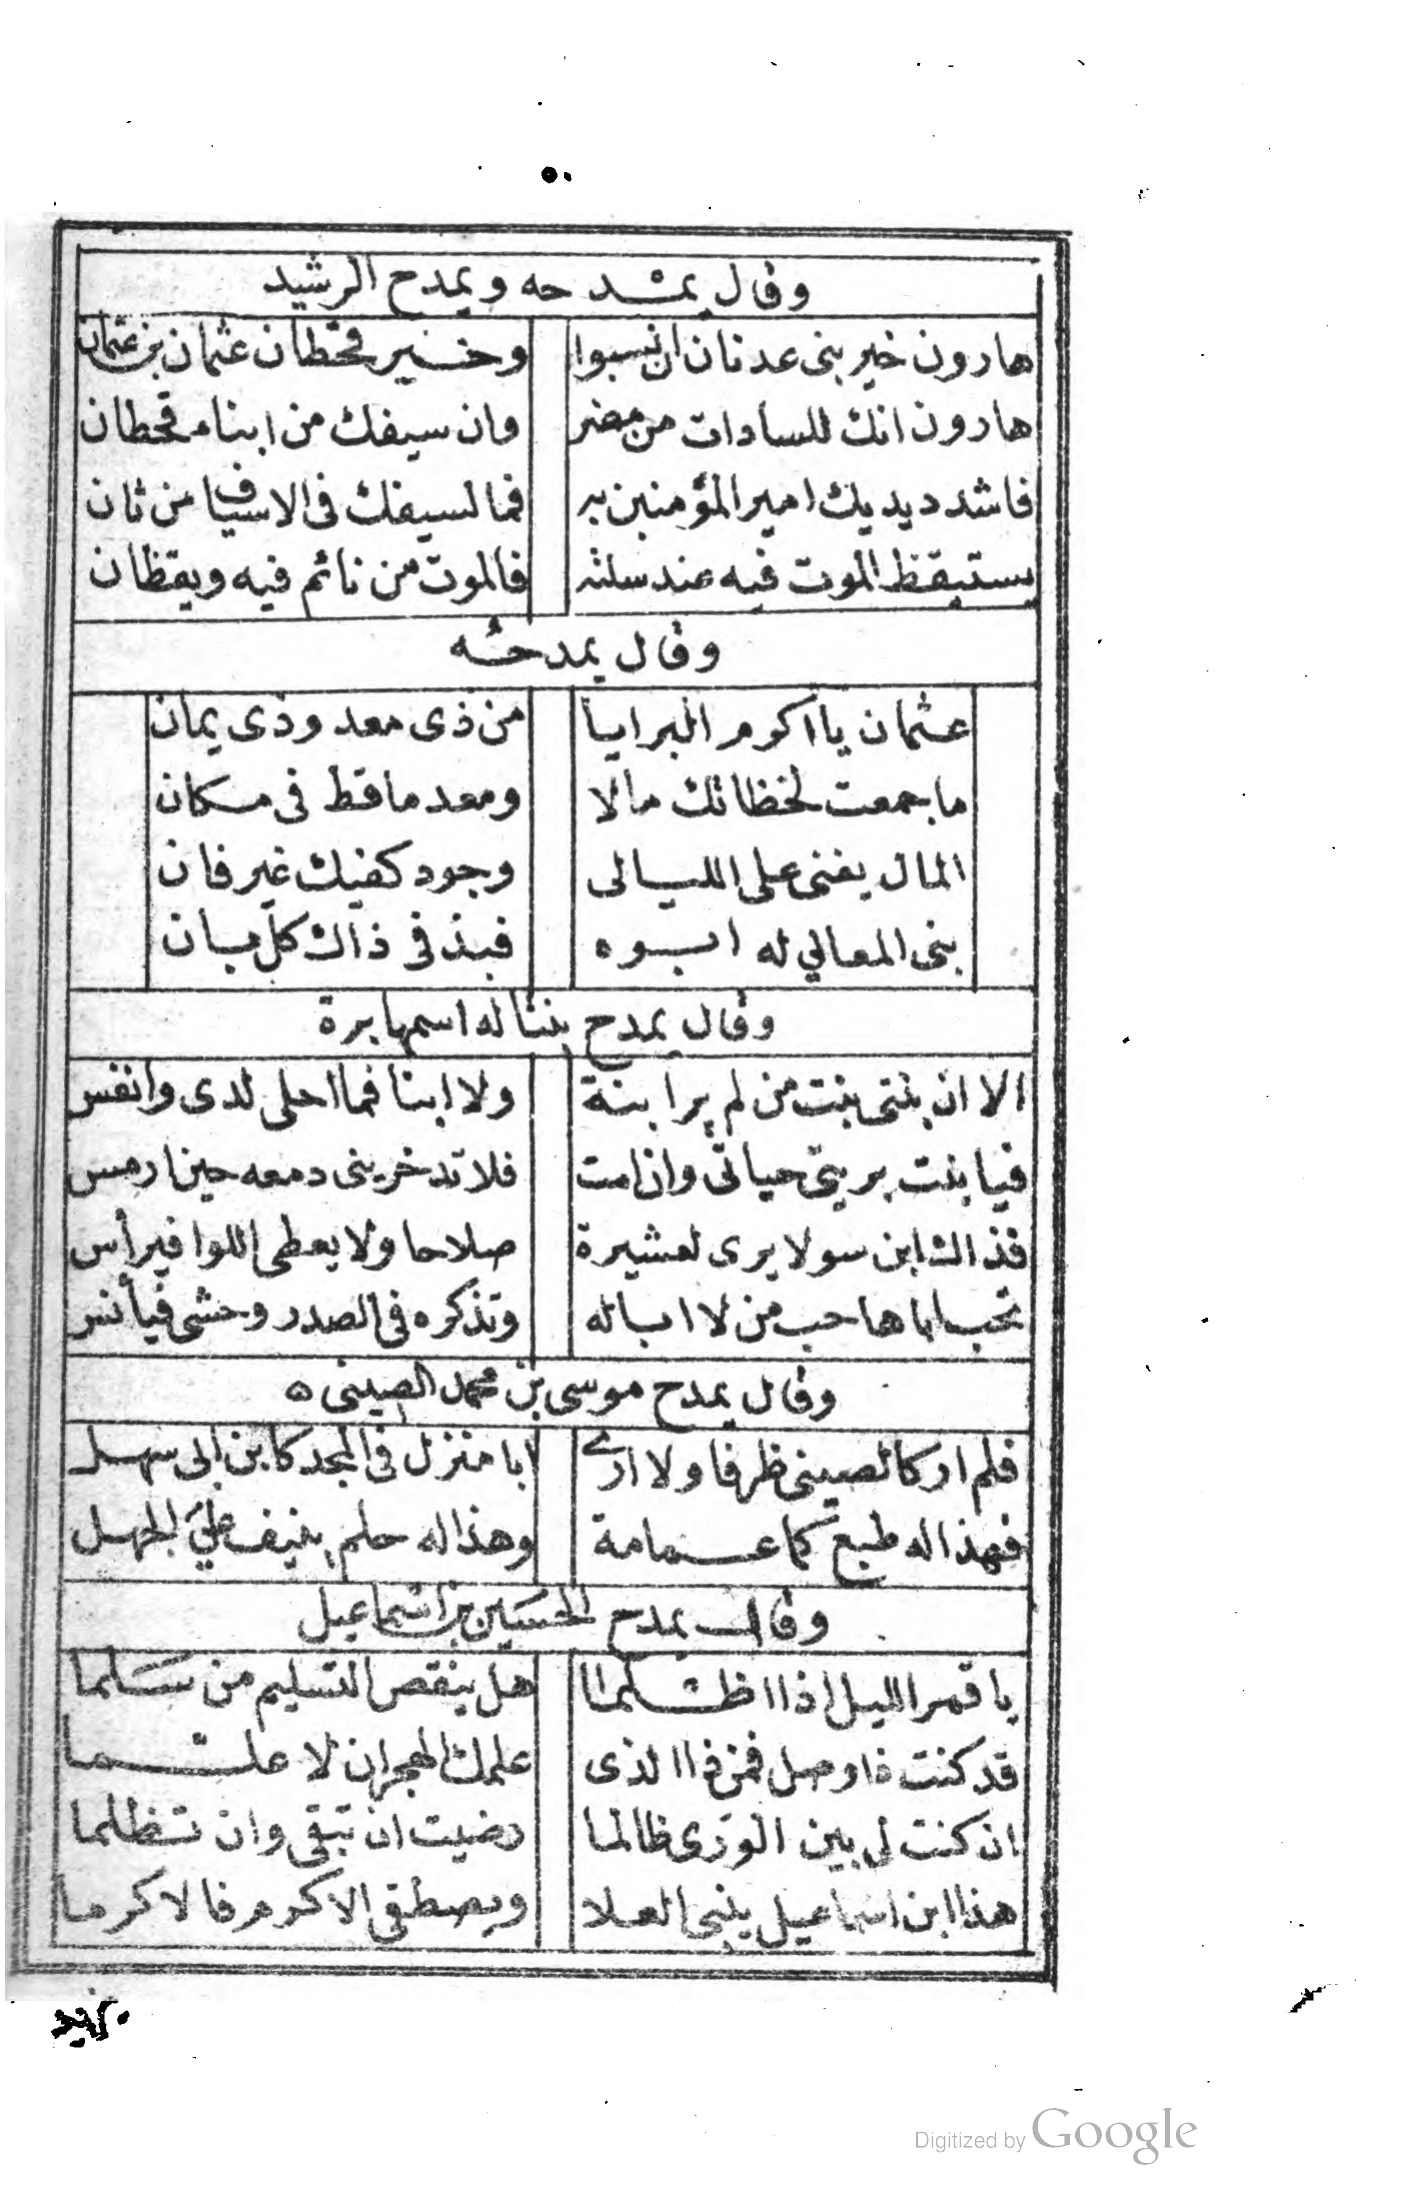 ٥٠
وقال يمدحه ويمدح الرشيد
هارون خير بنى عدنان ان نسبوا وخير قحطان عثمان بن عثمان
هارون انك للسادات من مضر وان سيفك من ابناء قحطان
فاشدد يديك امير المؤمنين به فما لسيفك فى الاسياف من ثان
يستيقظ الموت فيه عند سلته فالموت من نائم فيه ويقظان
وقال يمدحه
عثمان يا اكرم البرايا من ذى معد وذى يمان
ما جمعت لحظاتك مالا ومعد ما قط فى مكان
المال يفنى على الليالى وجود كفيك غير فان
بنى المعالي له ابوه فبذ فى ذاك كل بان
وقال يمدح بنتا له اسمها برة
الا ان بنتى بنت من لم ير ابنة ولا ابنا فما احلى لدى وانفس
فيا بنت بريتى حياتى وان امت فلا تدخرينى دمعه حين ارمس
فذاك ابن سو لا يرى لعشيرة صلاحا ولا يعطى اللوا فيرأس
تحب اباها حب من لا ابا له وتذكره فى الصدر وحشى فيأنس
وقال يمدح موسى بن محمد الصينى ه
فلم ار كالصينى ظرفا ولا ارى ابا منزل فى المجد كابن ابى سهل
فهذا له طبع كما عمامة وهذا له حلم ينيف على الجهل
وقال يمدح الحسين بن اسماعيل
يا قمر الليل اذا اظلما هل ينقص التسليم من سلما
قد كنت ذا وصل فمن ذا الذى علمك الهجران لا علما
ان كنت لى بين الورى ظالما رضيت ان تبقى وان تظلما
هذا ابن اسماعيل يبنى العلا ويصطفى الاكرم فالاكرما
Digitized by Google